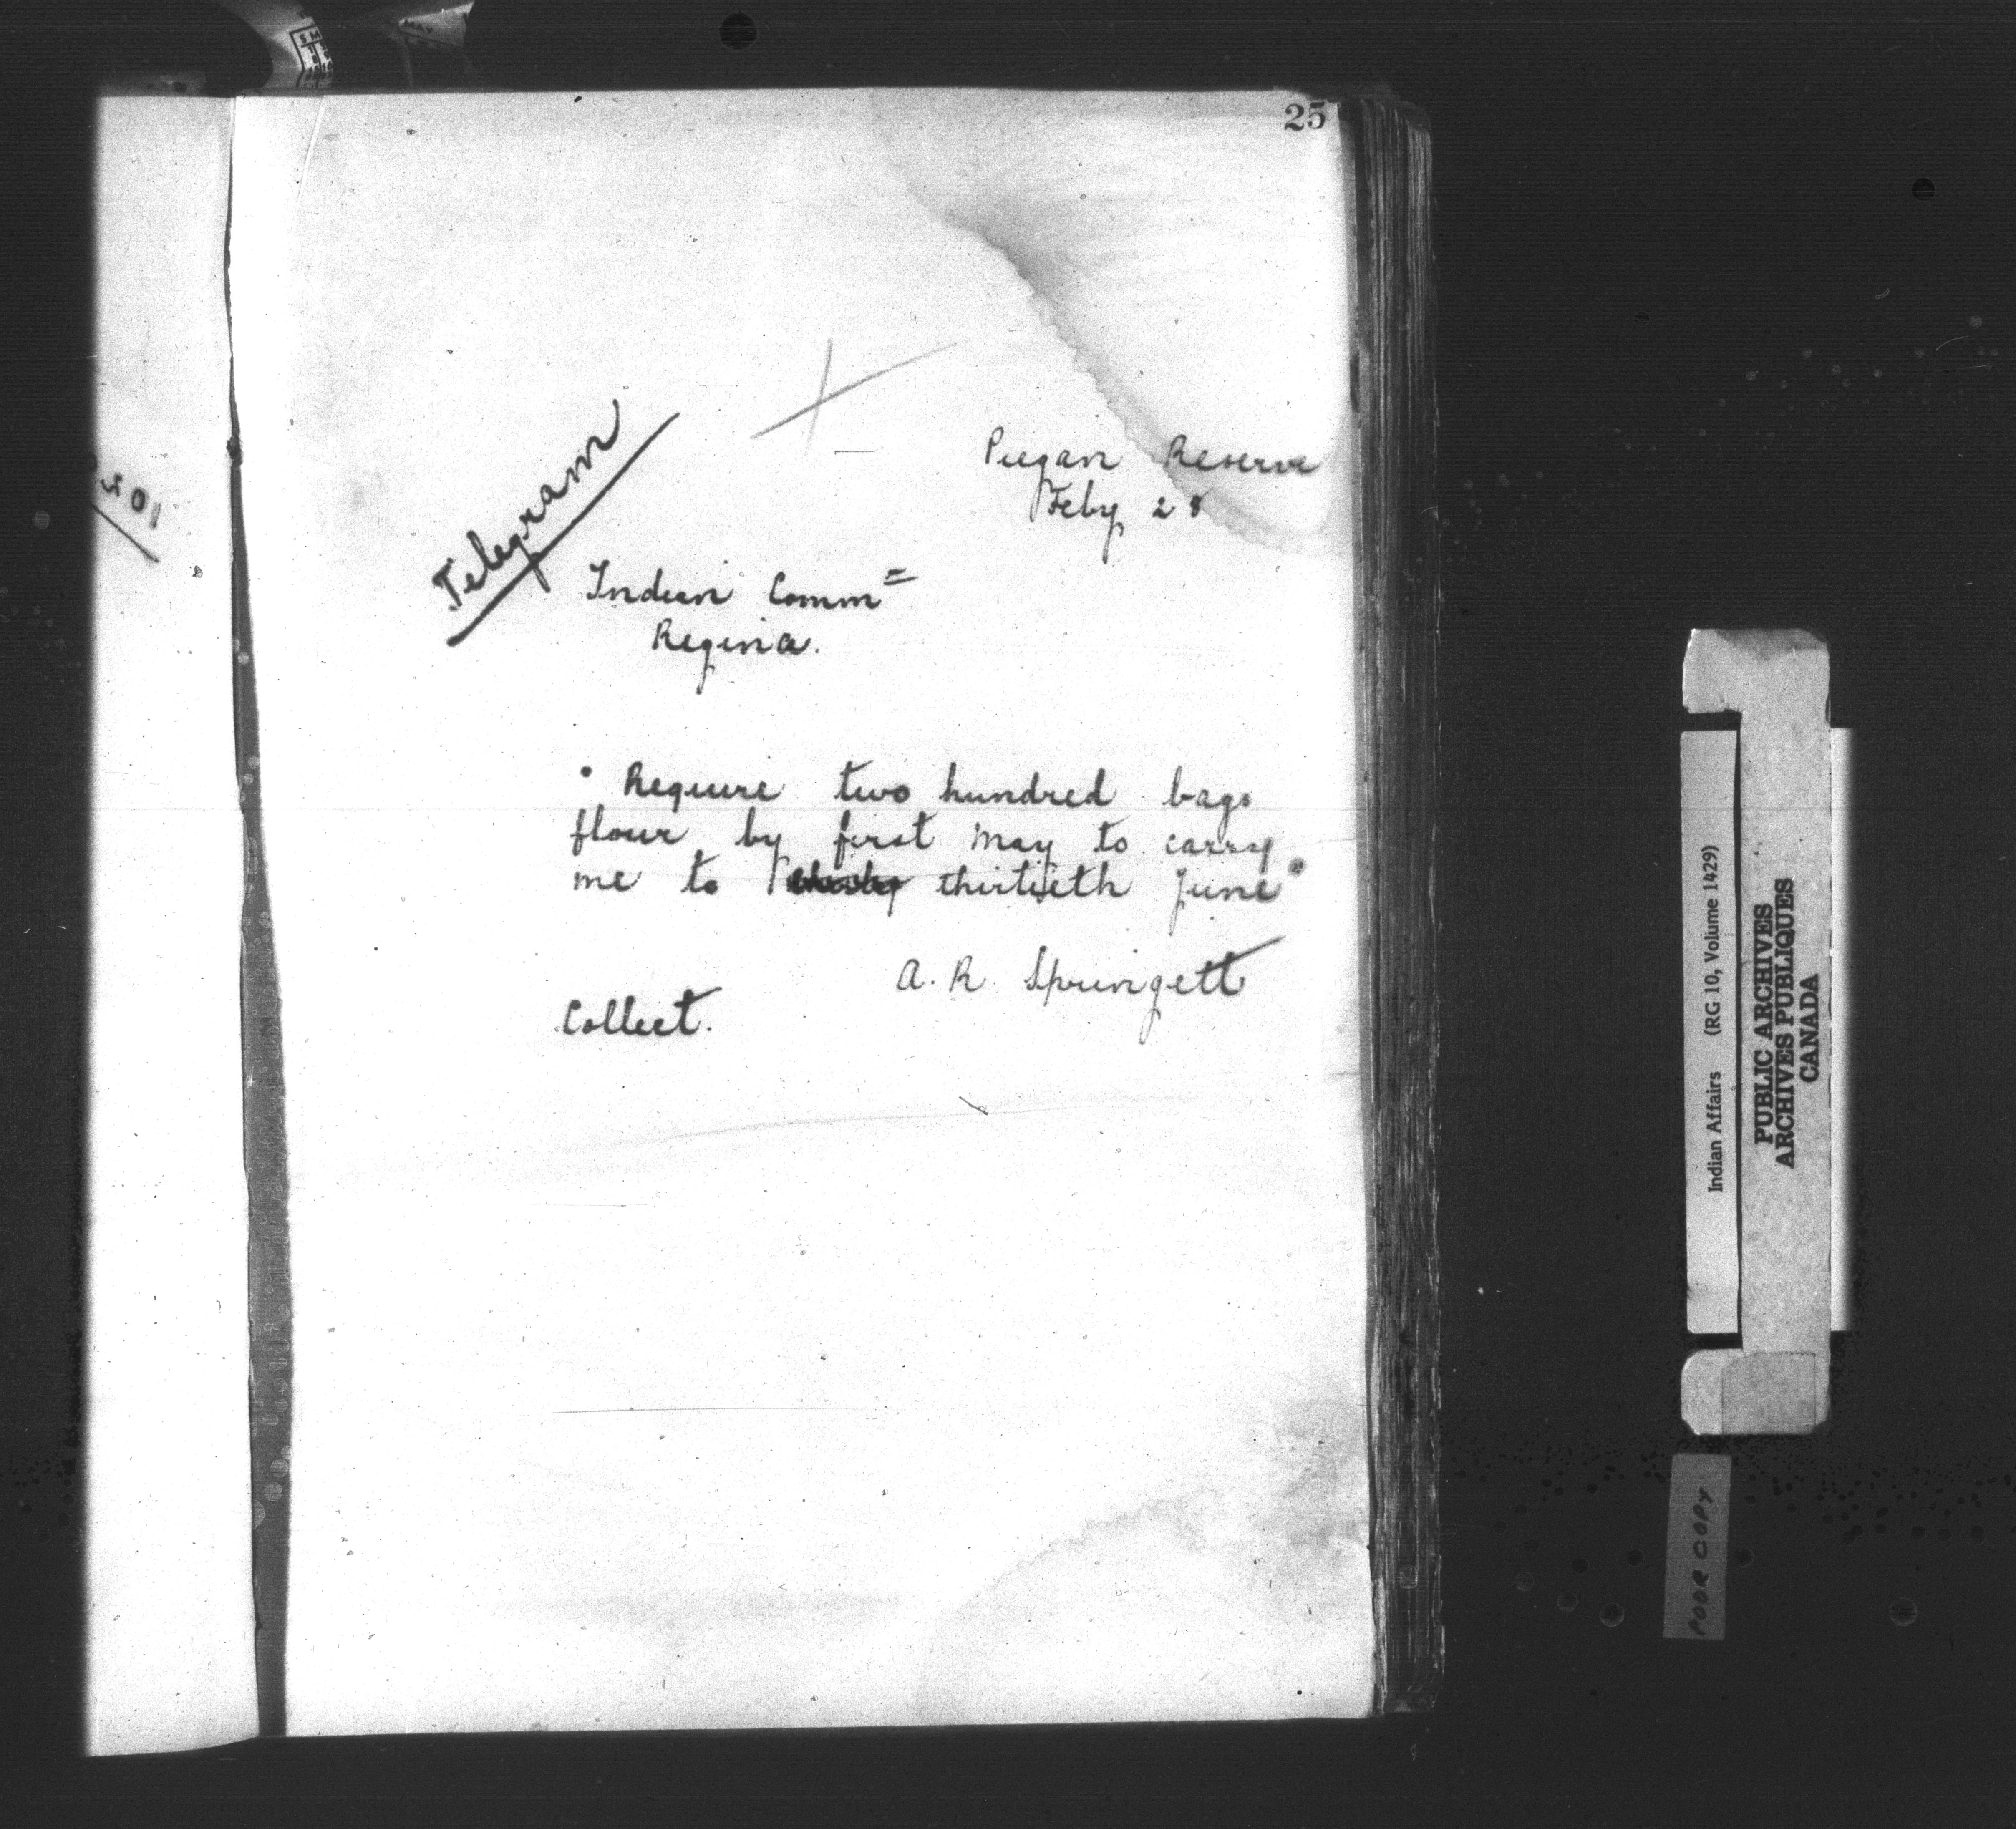 25
Telegram
Piegan Reserve
Feby 28
Indian Comm=
Regina.
" Require two hundred bags
flour by first May to carry
me to thirtieth June "
A. R. Springett
Collect.
Indian Affairs (RG 10, Volume 1429)
PUBLIC ARCHIVES
ARCHIVES PUBLIQUES
CANADA
POOR COPY